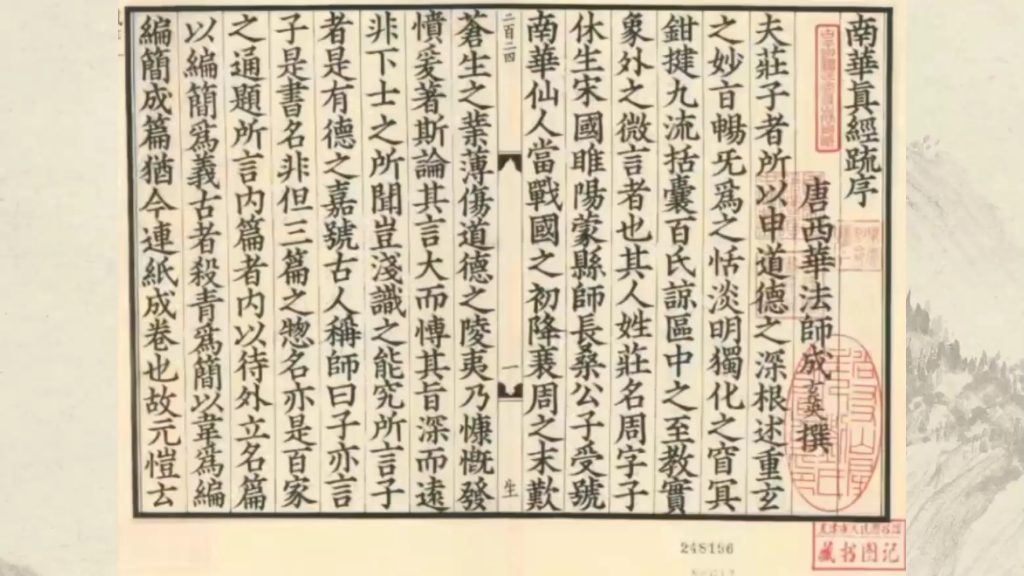 南華真經疏序
唐西華法師成玄英撰
夫莊子者所以申道德之深根述重玄
之妙言暢旡爲之恬淡明獨化之窅冥
鉗揵九流括囊百氏諒區中之至教實
象外之微言者也其人姓莊名周字子
休生宋國睢陽蒙縣師長桑公子受號
南華仙人當戰國之初降衰周之末歎
二百二四
一
生
蒼生之業薄傷道德之陵夷乃慷慨發
憤爰著斯論其言大而慱其旨深而遠
非下士之所聞豈淺識之能究所言子
者是有德之嘉號古人稱師曰子亦言
子是書名非但三篇之惣名亦是百家
之通題所言内篇者内以待外立名篇
以編簡爲義古者殺青爲簡以韋爲編
編簡成篇猶今連紙成卷也故元愷云
天津市人民圖書館
藏书图记
248196